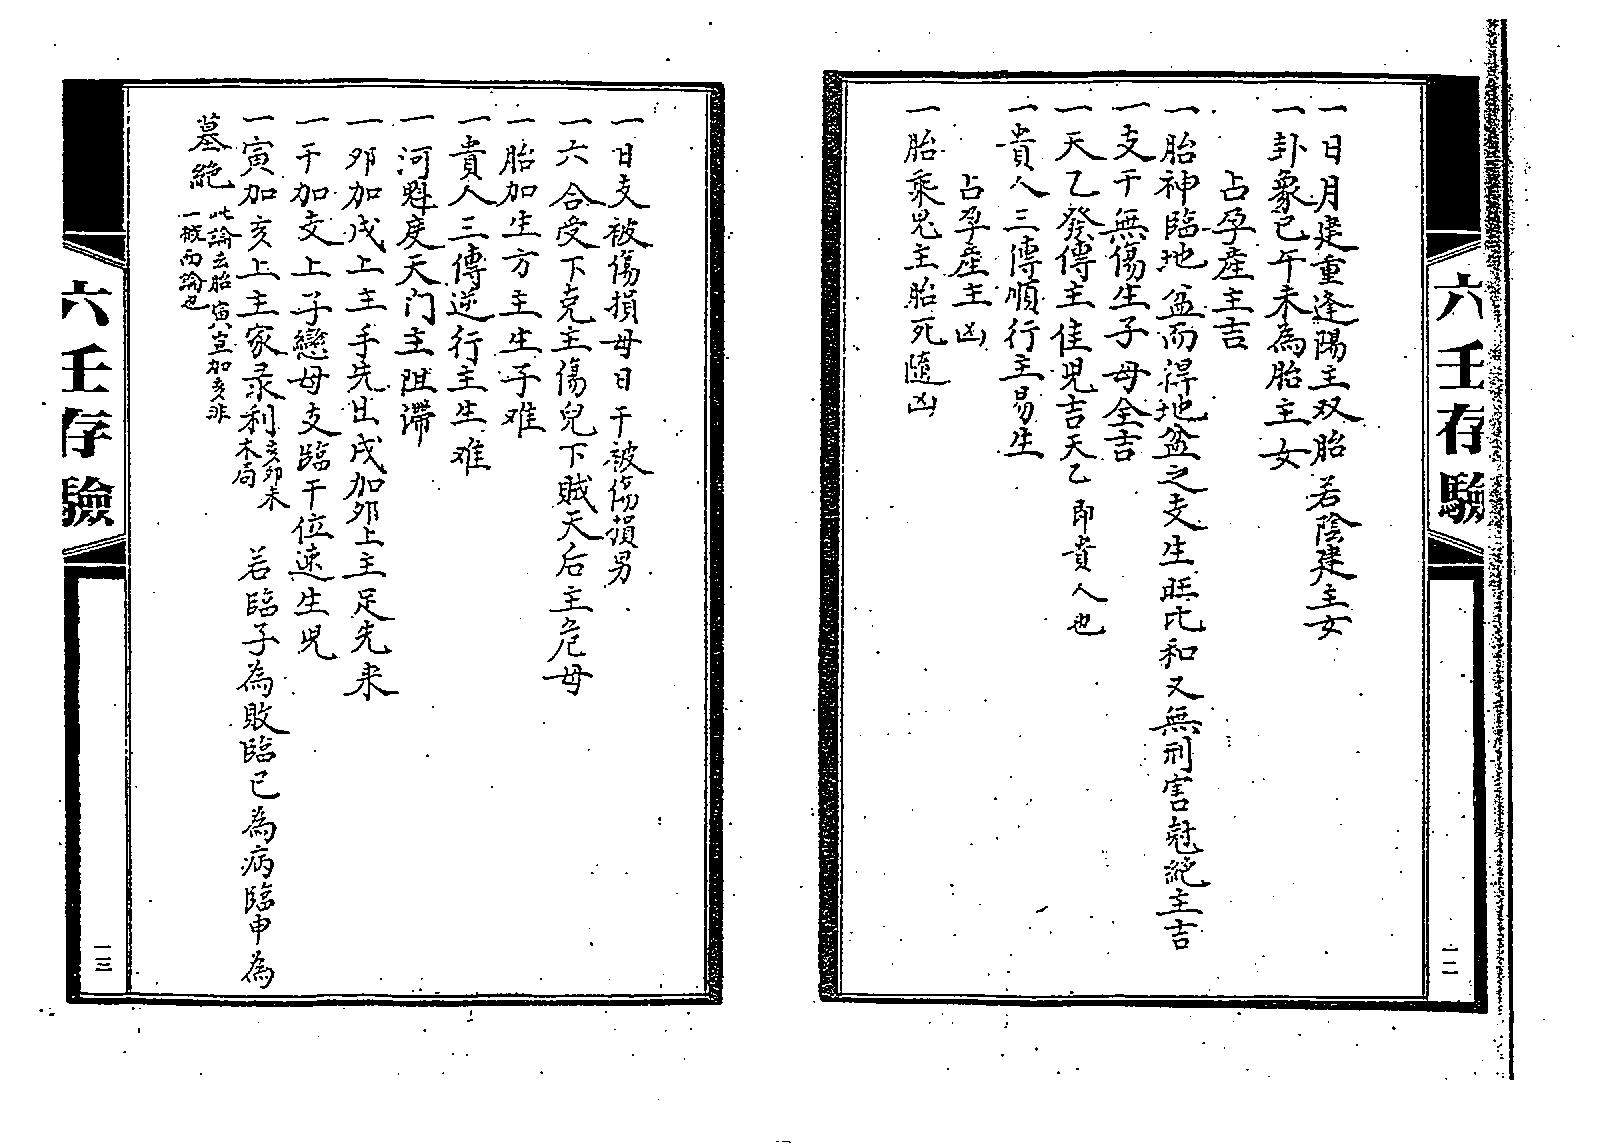 六壬存驗
一二
一日月建重逢陽主双胎若陰建主女
一卦象巳午未為胎主女
占孕產主吉
一胎神臨地盆而得地盆之支生旺比和又無刑害尅絕主吉
一支干無傷生子母全吉
一天乙發傳主佳児吉天乙即貴人也
一貴人三傳順行主易生
占孕產主凶
一胎乘鬼主胎死隨凶
一日支被傷損母日干被傷損男
一六合受下克主傷兒下賊天后主危母
一胎加生方主生子难
一貴人三傳逆行主生难
一河魁度天门主阻滞
一夘加戌上主手先出戌加夘上主足先来
一干加支上子戀母支臨干位速生児
一寅加亥上主家录利亥卯未木局 若臨子為敗臨巳為病臨申為
墓絕此論去胎寅豈加亥非一概而論也
六壬存驗
一三